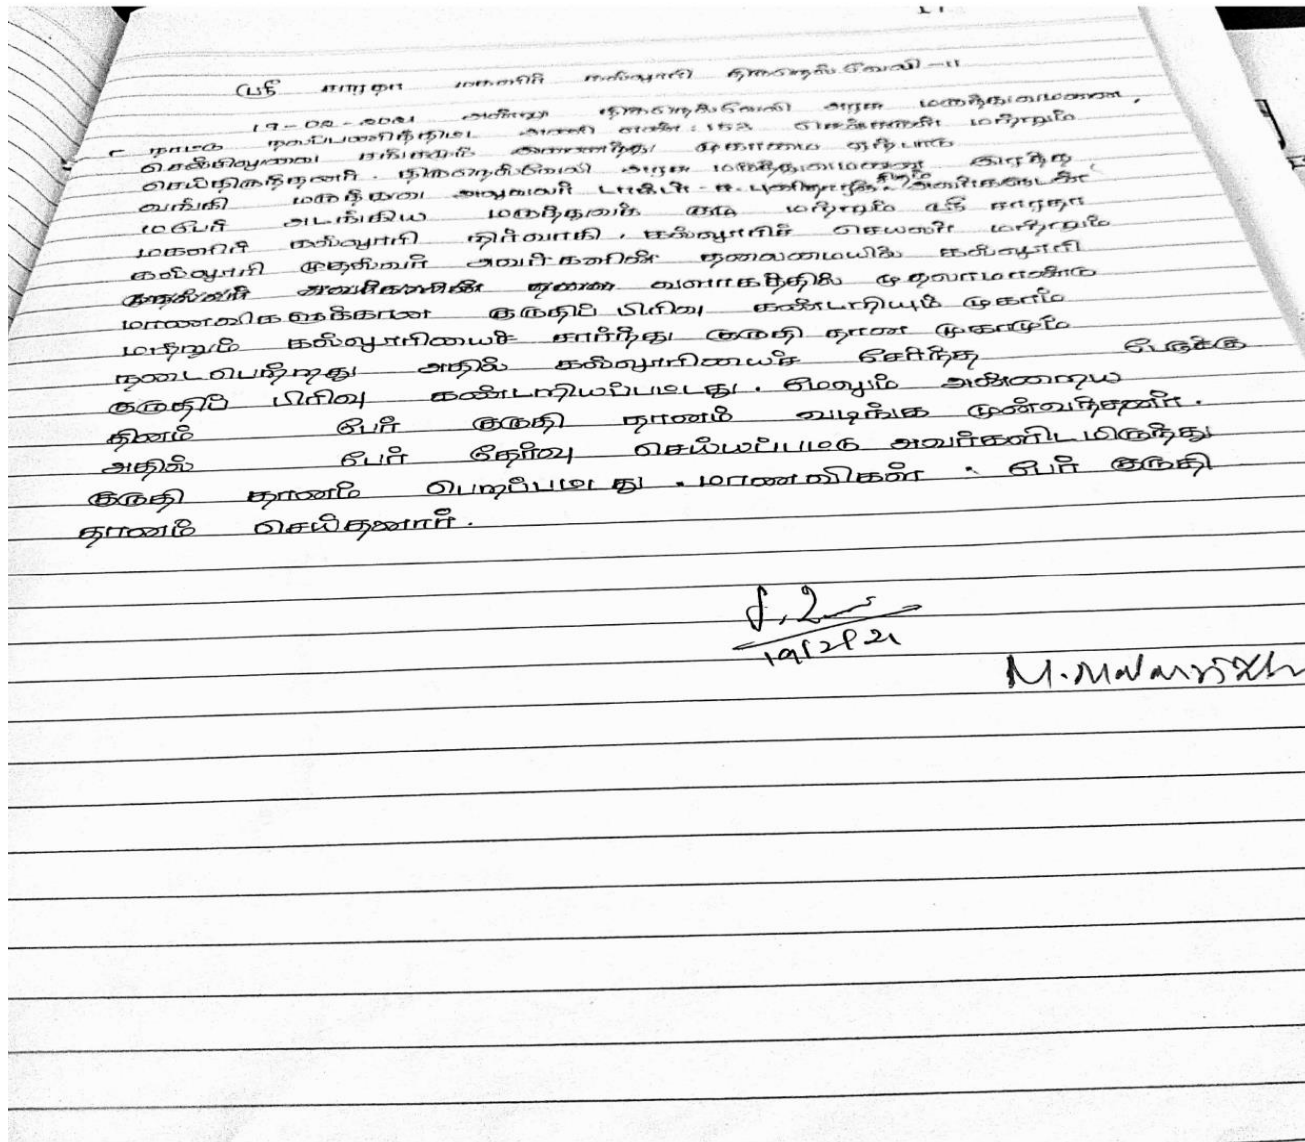 ஸ்ரீ சாரதா மகளிர் கல்லூரி திருநெல்வேலி - 11
19-02-2021 அன்று திருநெல்வேலி அரசு மருத்துவமனை,
நாட்டு நலப்பணித்திட்ட அணி எண்: 152 செஞ்சுருள் மற்றும்
செஞ்சிலுவை சங்கமும் அனைத்து முகாமை ஏற்பாடு
செய்திருந்தனர். திருநெல்வேலி அரசு மருத்துவமனை இரத்த
வங்கி மருத்துவ அலுவலர் டாக்டர் அவர்களுடன்
அடங்கிய மருத்துவக் குழு மற்றும் ஸ்ரீ சாரதா
மகளிர் கல்லூரி நிர்வாகி, கல்லூரிச் செயலர் மற்றும்
கல்லூரி முதல்வர் அவர்களின் தலைமையில் கல்லூரி
வளாகத்தில் முதலாமாண்டு
மாணவிகளுக்கான குருதிப் பிரிவு கண்டறியும் முகாம்
மற்றும் கல்லூரியைச் சார்ந்து குருதி தான முகாமும்
நடைபெற்றது அதில் கல்லூரியைச் சேர்ந்த பேருக்கு
குருதிப் பிரிவு கண்டறியப்பட்டது. மேலும் அன்றைய
தினம் பேர் குருதி தானம் வழங்க முன்வந்தனர்.
அதில் பேர் தேர்வு செய்யப்பட்டு அவர்களிடமிருந்து
குருதி தானம் பெறப்பட்டது. மாணவிகள் பேர் குருதி
தானம் செய்தனார்.
19/2/21